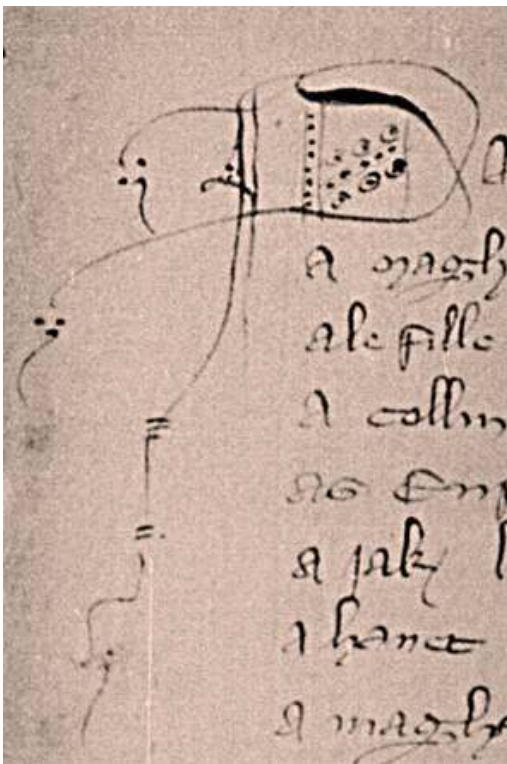 A
A magh
ale fille
A collin
as Enf
A jaky l
A hanet
A magh